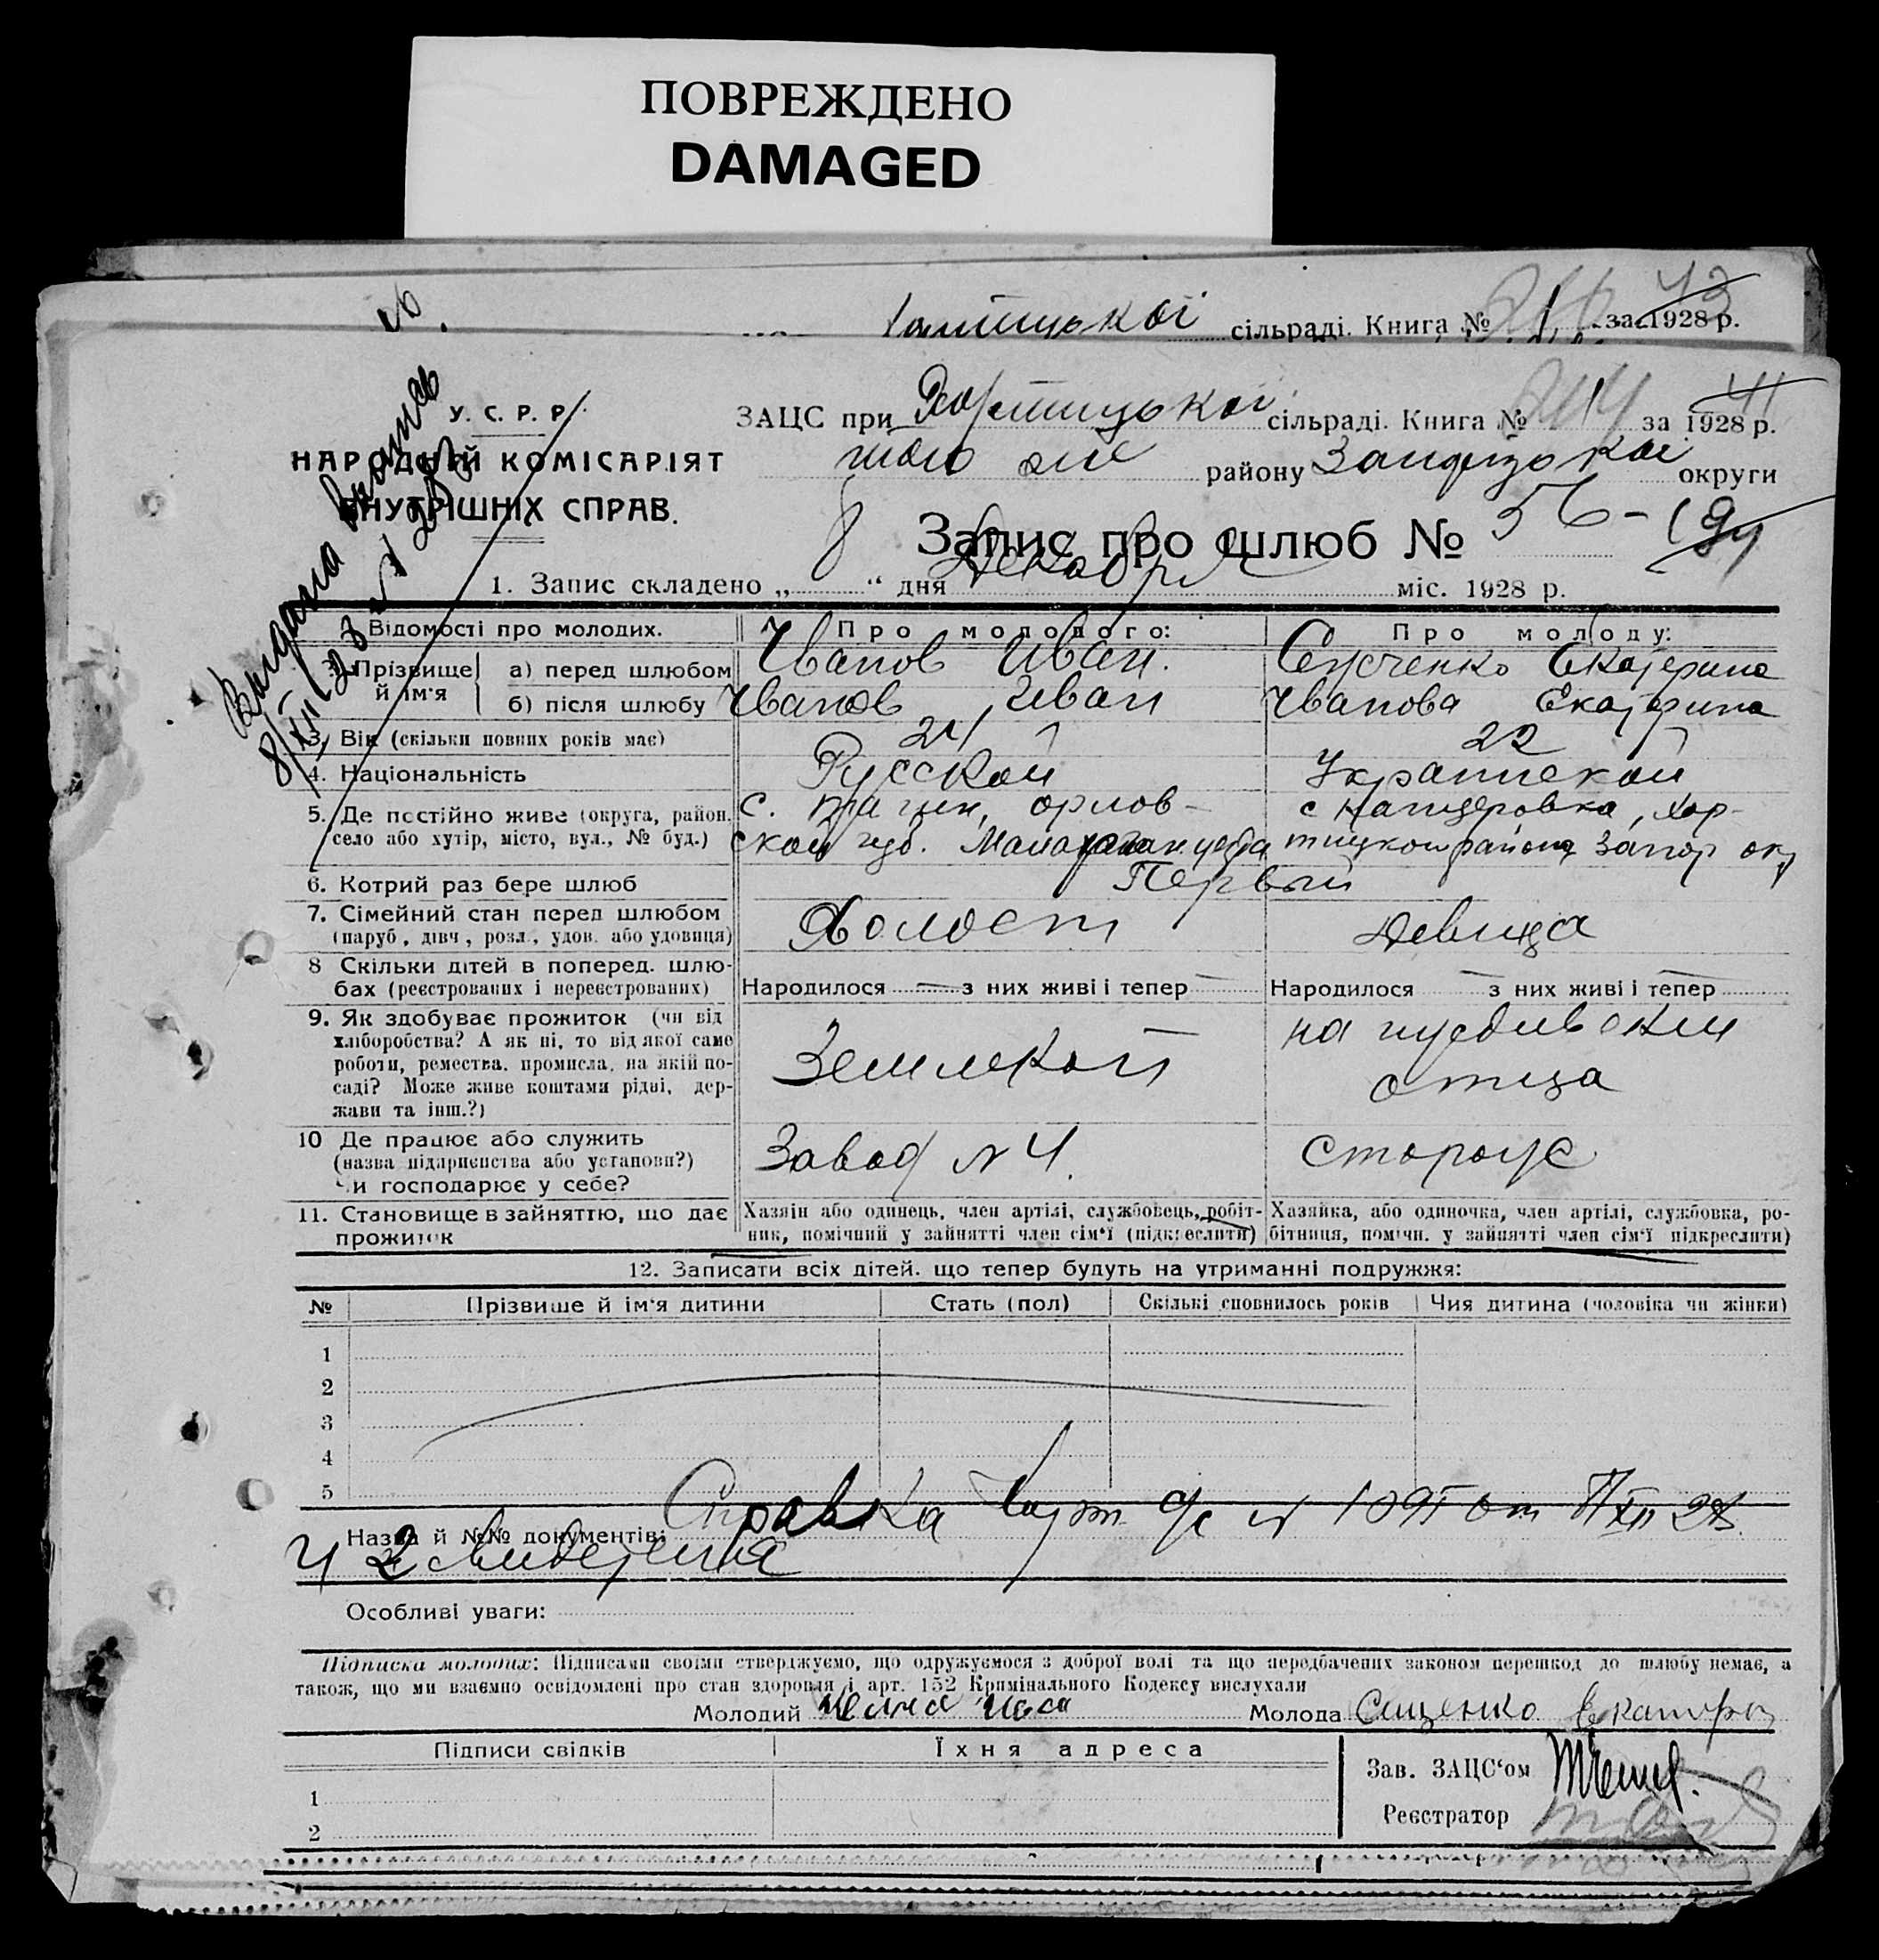 ПОВРЕЖДЕНО
DAMAGED
сільраді. Книга № за 1928 р.
У. С. Р. Р.
НАРОДНІЙ КОМІСАРІЯТ
ВНУТРІШНІХ СПРАВ.
Видана
ЗАЦС при Хортицькоі сільраді. Книга № 1 за 1928 р.
того же району Запорізькоі округи
Запис про шлюб № 56-
1. Запис складено „ 8 “ дня Декабря міс. 1928 р.
Відомості про молодих. Про молодого: Про молоду:
2. Прізвище й ім'я а) перед шлюбом Иванов Иван. Екатерина
б) після шлюбу Иванов Иван Иванова Екатерина
3. Вік (скільки повних років має) 24 22
4. Національність Русской Украинской
5. Де постійно живе (округа, район, с. орлов- с Канцеровка, Хор-
село або хутір, місто, вул., № буд.) ской губ. уезда тицкой района Запор окр
6. Котрий раз бере шлюб Первый
7. Сімейний стан перед шлюбом Холост Девица
(паруб., дівч., розл., удов. або удовиця)
8 Скільки дітей в поперед. шлю-
бах (реєстрованих і нереєстрованих) Народилося — з них живі і тепер — Народилося — з них живі і тепер —
9. Як здобуває прожиток (чи від на иждивении
хліборобства? А як ні, то від якої саме
роботи, ремества, промисла, на якій по- Землекоп отца
саді? Може живе коштами рідні, дер-
жави та інш.?)
10 Де працює або служить Завод № 4. Сторож
(назва підприємства або установи?)
Чи господарює у себе?
11. Становище в зайняттю, що дає Хазяїн або одинець, член артілі, службовець, робіт- Хазяйка, або одиночка, член артілі, службовка, ро-
прожиток ник, помічний у зайнятті член сім'ї (підкреслити) бітниця, помічн. у зайнятті член сім'ї підкреслити)
12. Записати всіх дітей, що тепер будуть на утриманні подружжя:
№ Прізвище й ім'я дитини Стать (пол) Скількі сповнилось років Чия дитина (чоловіка чи жінки)
1
2
3
4
5
Назва й №№ документів: Справка Хорт с/с № от XII 28
и 2
Особливі уваги:
Підписка молодих: Підписами своїми стверджуємо, що одружуємося з доброї волі та що передбачених законом перешкод до шлюбу немає, а
також, що ми взаємно освідомлені про стан здоровля і арт. 152 Кримінального Кодексу вислухали
Молодий Молода Сищенко
Підписи свідків Їхня адреса
Зав. ЗАЦС'ом
1
Реєстратор
2